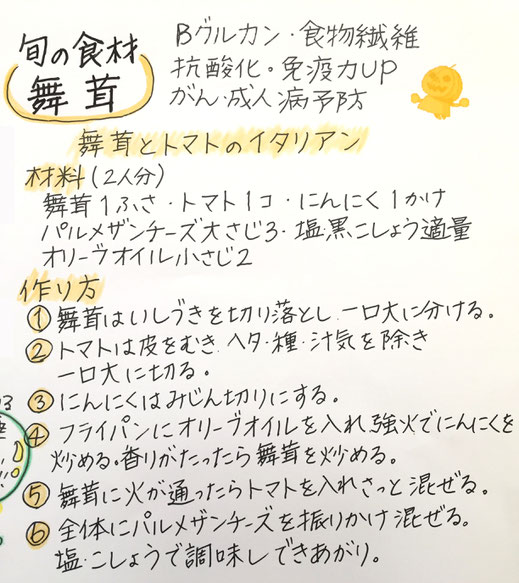 旬の食材
舞茸
Bグルカン・食物繊維
抗酸化・免疫力UP
がん・成人病予防
舞茸とトマトのイタリアン
材料(2人分)
舞茸1ふさ・トマト1コ・にんにく1かけ
パルメザンチーズ大さじ3・塩・黒こしょう適量
オリーブオイル小さじ2
作り方
① 舞茸はいしづきを切り落とし、一口大に分ける。
② トマトは皮をむき、ヘタ・種・汁気を除き
一口大に切る。
③ にんにくはみじん切りにする。
④ フライパンにオリーブオイルを入れ強火でにんにくを
炒める。香りがたったら舞茸を炒める。
⑤ 舞茸に火が通ったらトマトを入れさっと混ぜる。
⑥ 全体にパルメザンチーズを振りかけ混ぜる。
塩・こしょうで調味しできあがり。